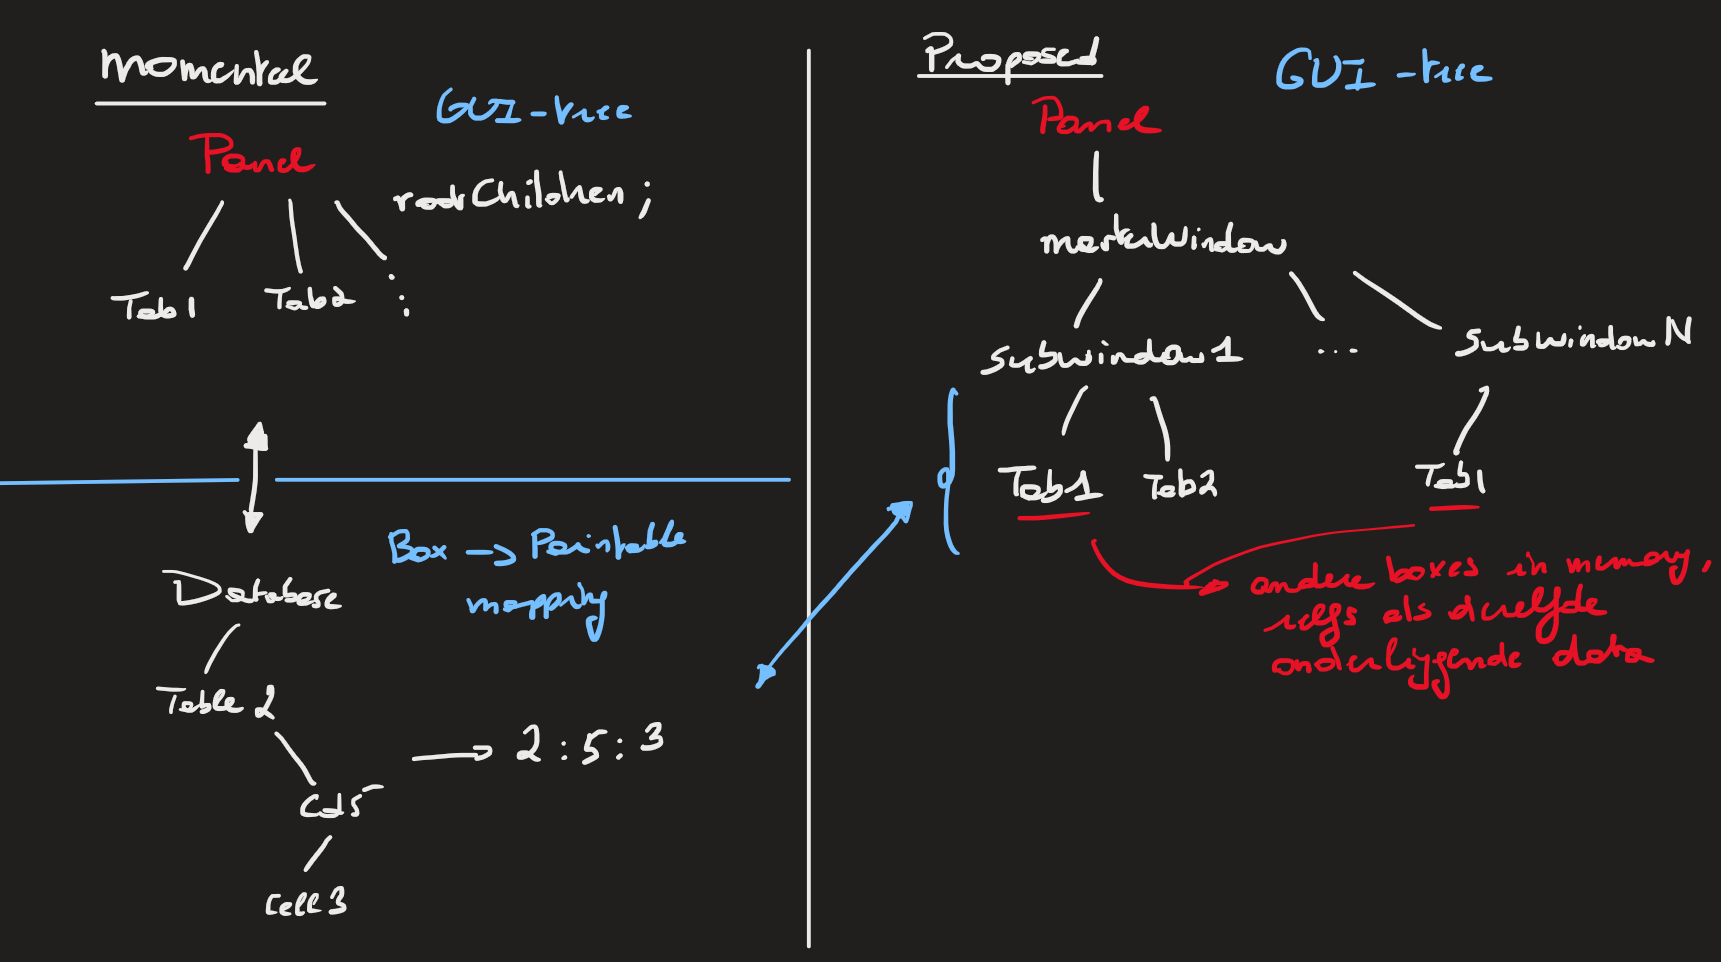 momental
GUI-tree
Panel
rootChildren;
Tab1
Tab2
Box → Paintable
mapping
Database
Table 2
→ 2:5:3
Col5
Cell3
Proposed
GUI-tree
Panel
masterWindow
subwindow1
...
subwindowN
Tab1
Tab2
Tab1
andere boxes in memory,
zelfs als dezelfde
onderliggende data